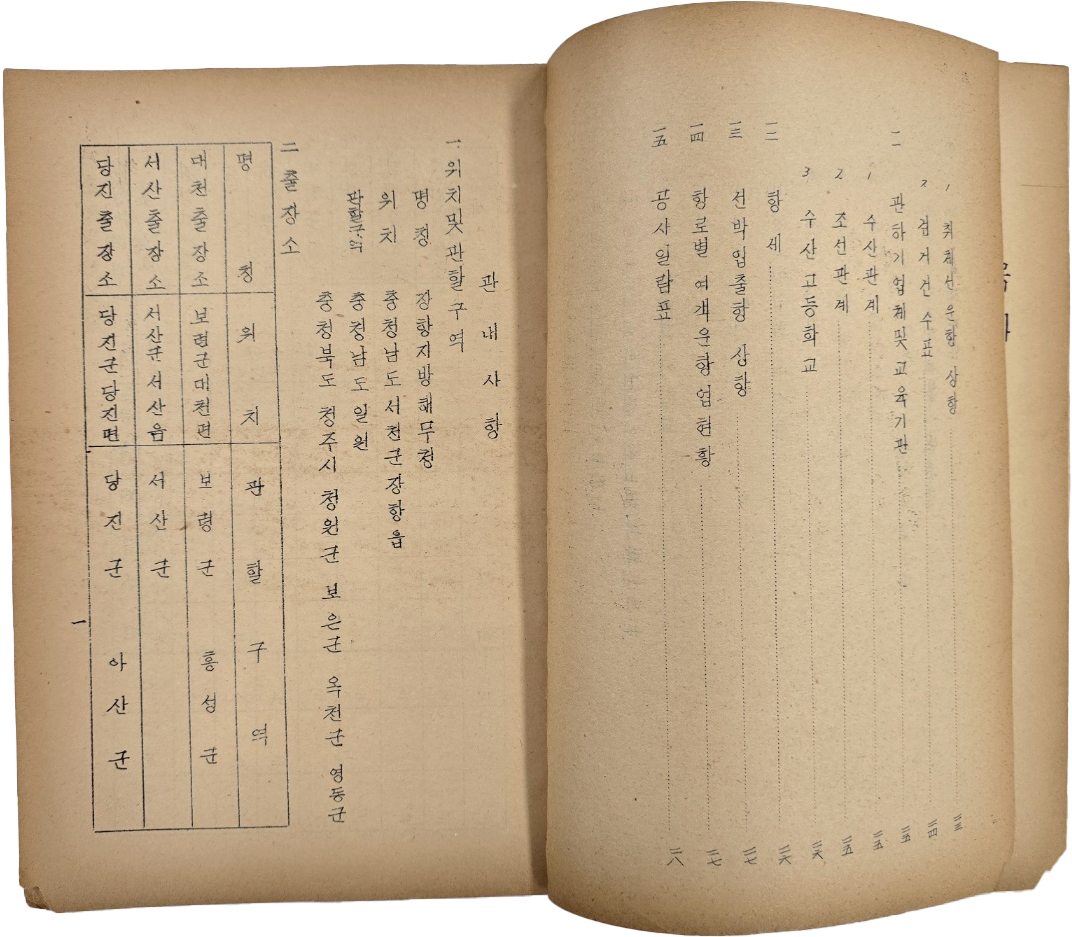 1 취체선 운항 상황 二三
2 검거건수표 二四
一一 관하기업체및교육기관 二五
1 수산관계 二五
2 조선관계 二五
3 수산고등학교 二六
一二 항세 二六
一三 선박입출항 상황 二七
一四 항로별 여객운항업현황 二七
一五 공사일람표 二八
관내사항
一 위치및관할구역
명칭 장항지방해무청
위치 충청남도서천군장항읍
관할구역 충청남도일원
충청북도 청주시 청원군 보은군 옥천군 영동군
二 출장소
명칭 위치 관할구역
대천출장소 보령군대천면 보령군 홍성군
서산출장소 서산군서산읍 서산군
당진출장소 당진군당진면 당진군 아산군
一